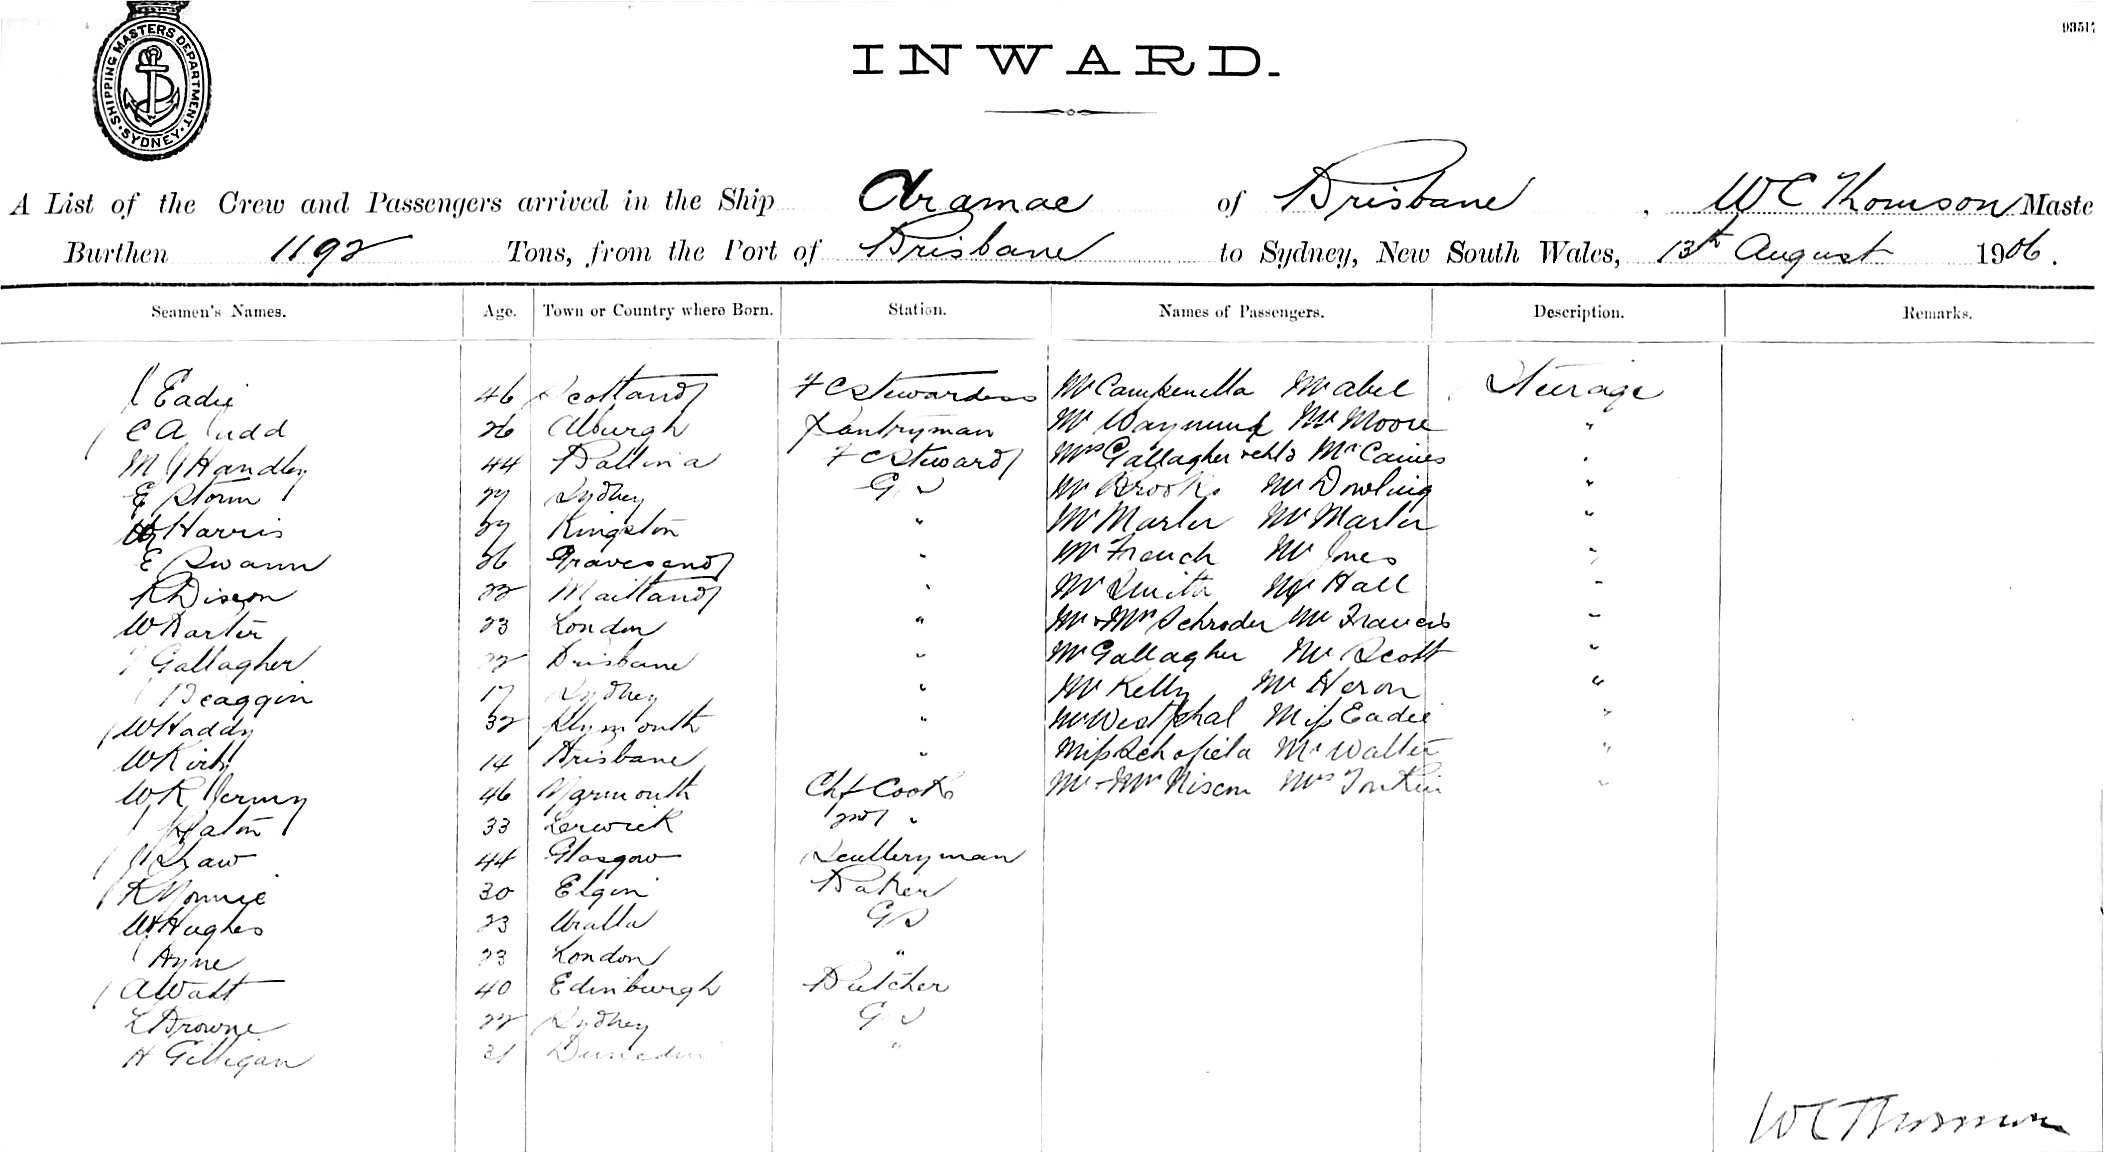 SHIPPING MASTERS DEPARTMENT. SYDNEY.
INWARD.
A List of the Crew and Passengers arrived in the Ship Aramac of Brisbane, W C Thomson Maste
Burthen 1192 Tons, from the Port of Brisbane to Sydney, New South Wales, 13th August 1906.
Seamen's Names. Age. Town or Country where Born. Station. Names of Passengers. Description. Remarks.
J Eadie 46 Scotland F C Stewardess Mr Campenella Mr Abel Steerage
C A Judd 26 Alburgh Pantryman Mr Mr Moore "
M J Handley 44 Ballina F C Steward Mrs Gallagher & chld Mr Caines "
E Storm 27 Sydney G S Mr Brooks Mr Dowling "
Harris 27 Kingston " Mr Marler Mr Marler "
E Swann 26 Gravesend " Mr French Mr Jones "
R Dixon 22 Maitland " Mr Smith Mr Hall "
W Karter 23 London " Mr & Mrs Schroder Mr Francis "
Gallagher 22 Brisbane " Mr Gallagher Mr Scott "
J 17 Sydney " Mr Kelly Mr Heron "
W Haddy 32 Plymouth " Mr Westphal Miss Eadie "
W Kirby 14 Brisbane " Miss Schofield Mr Walter "
W R Jermy 46 Yarmouth Chf Cook Mr & Mrs Nixon Mrs Tonkin "
J Eaton 33 Lerwick 2nd "
J Shaw 44 Glasgow Sculleryman
R 30 Elgin Baker
W Hughes 23 Uralla G S
J Hyne 23 London "
A Watt 40 Edinburgh Butcher
L Browne 22 Sydney G S
H Gilligan 21 Dunedin "
W C Thomson